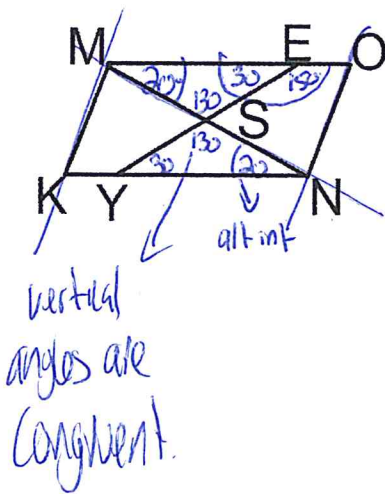 M E O
20 30 150
130
S
130
30 20
K Y N
alt int
vertical
angles are
congruent.